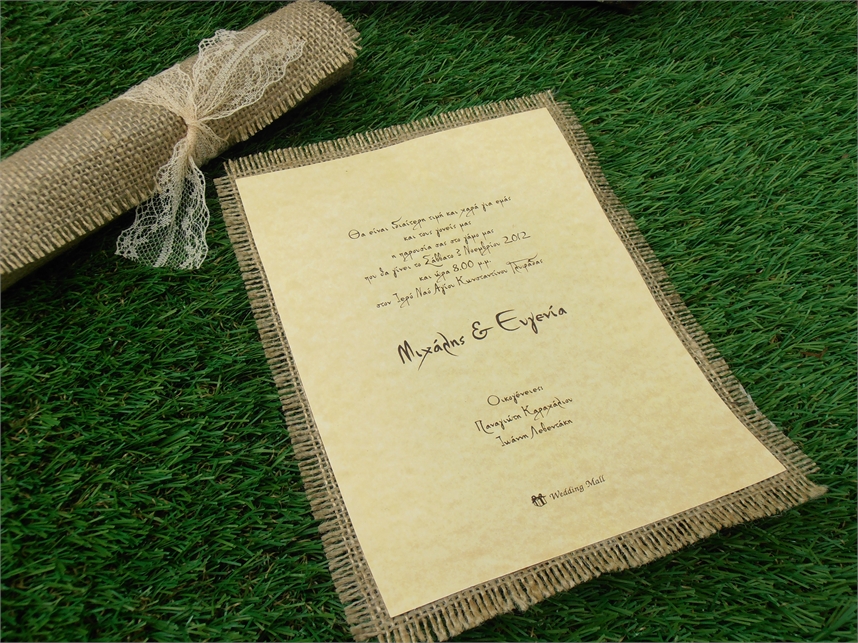 Θα είναι ιδιαίτερη τιμή και χαρά για εμάς
και τους γονείς μας
η παρουσία σας στο γάμο μας
που θα γίνει το Σάββατο 3 Νοεμβρίου 2012
και ώρα 8.00 μ.μ.
στον Ιερό Ναό Αγίου Κωνσταντίνου Γλυφάδας
Μιχάλης & Ευγενία
Οικογένειες
Παναγιώτη Καραχάλιου
Ιωάννη
Wedding Mall